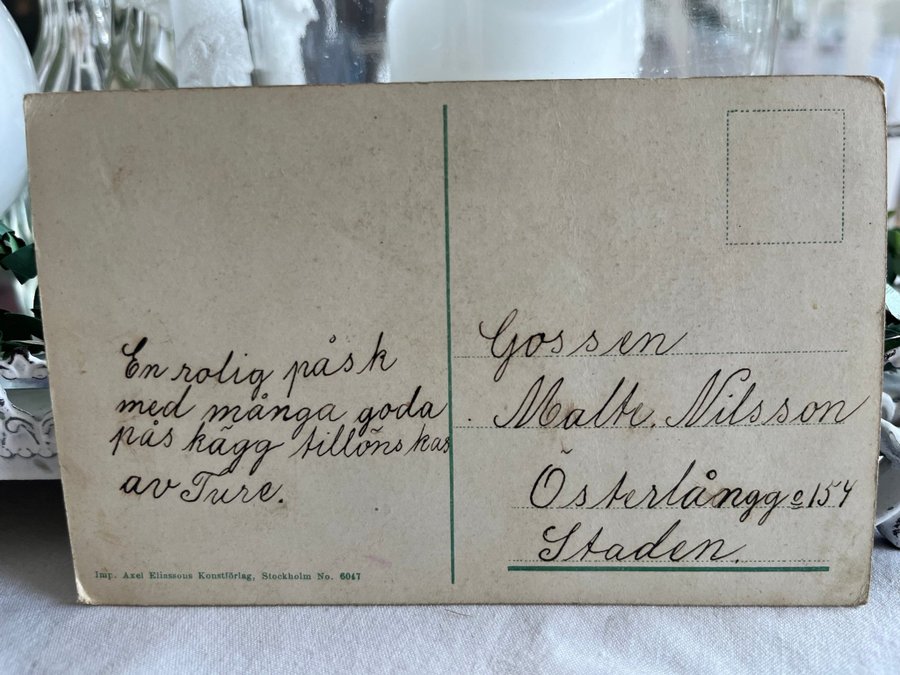 En rolig påsk
med många goda
påskägg tillönskas
av Ture.
Imp. Axel Eliassons Konstförlag, Stockholm No. 6047
Gossen
Malte. Nilsson
Österlångg o 154
Staden.